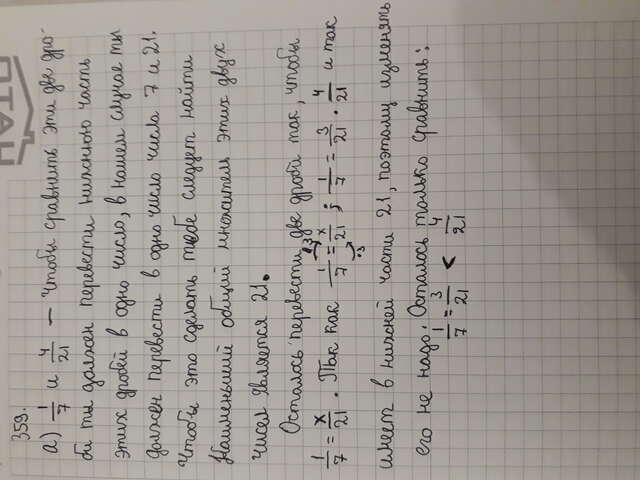 ПТАН
359.
а) 1/7 и 4/21 — Чтобы сравнить эти две дро-
би ты должен перевести нижнюю часть
этих дробей в одно число, в нашем случае ты
должен перевести в одно число числа 7 и 21.
Чтобы это сделать тебе следует найти
Наименьший общий множитель этих двух
чисел является 21.
Осталось перевести две дробй так, чтобы
1/7 = x/21 . Так как 1/7 = x/21 ; 1/7 = 3/21 . 4/21 и так
·3
·3
имеет в нижней части 21, поэтому изменять
его не надо. Осталось только сравнить:
1/7 = 3/21 < 4/21